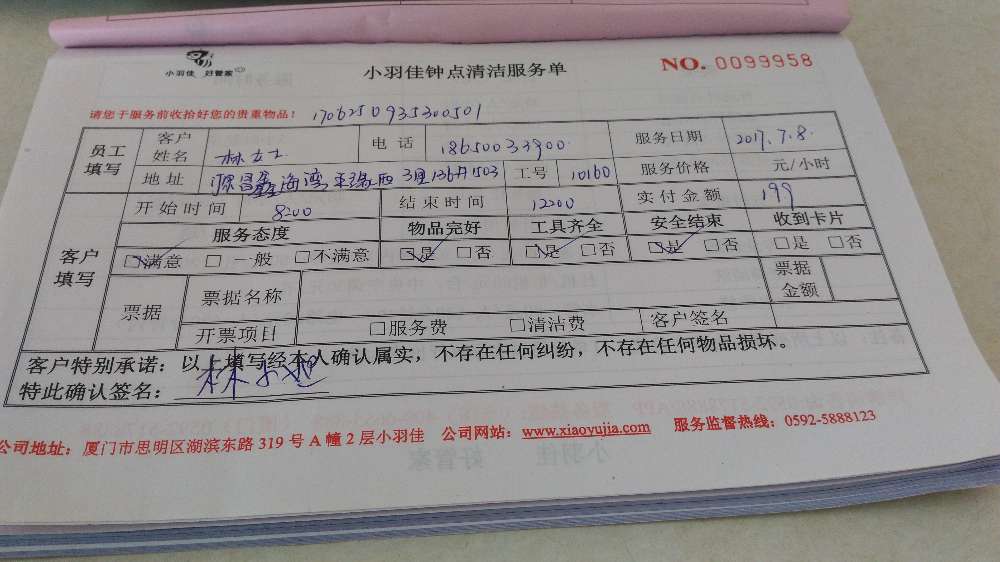 小羽佳 好管家
小羽佳钟点清洁服务单
NO. 0099958
请您于服务前收拾好您的贵重物品! 1706250935300501
员工填写 客户姓名 林女士 电话 18650033900 服务日期 2017.7.8.
地址 海湾 503 工号 10160 服务价格 元/小时
客户填写 开始时间 8:00 结束时间 12:00 实付金额 199
服务态度 物品完好 工具齐全 安全结束 收到卡片
☑满意 □一般 □不满意 ☑是 □否 ☑是 □否 ☑是 □否 □是 □否
票据 票据名称 票据金额
开票项目 □服务费 □清洁费 客户签名
客户特别承诺：以上填写经本人确认属实，不存在任何纠纷，不存在任何物品损坏。
特此确认签名：林
公司地址：厦门市思明区湖滨东路 319 号 A 幢 2 层小羽佳 公司网站：www.xiaoyujia.com 服务监督热线：0592-5888123